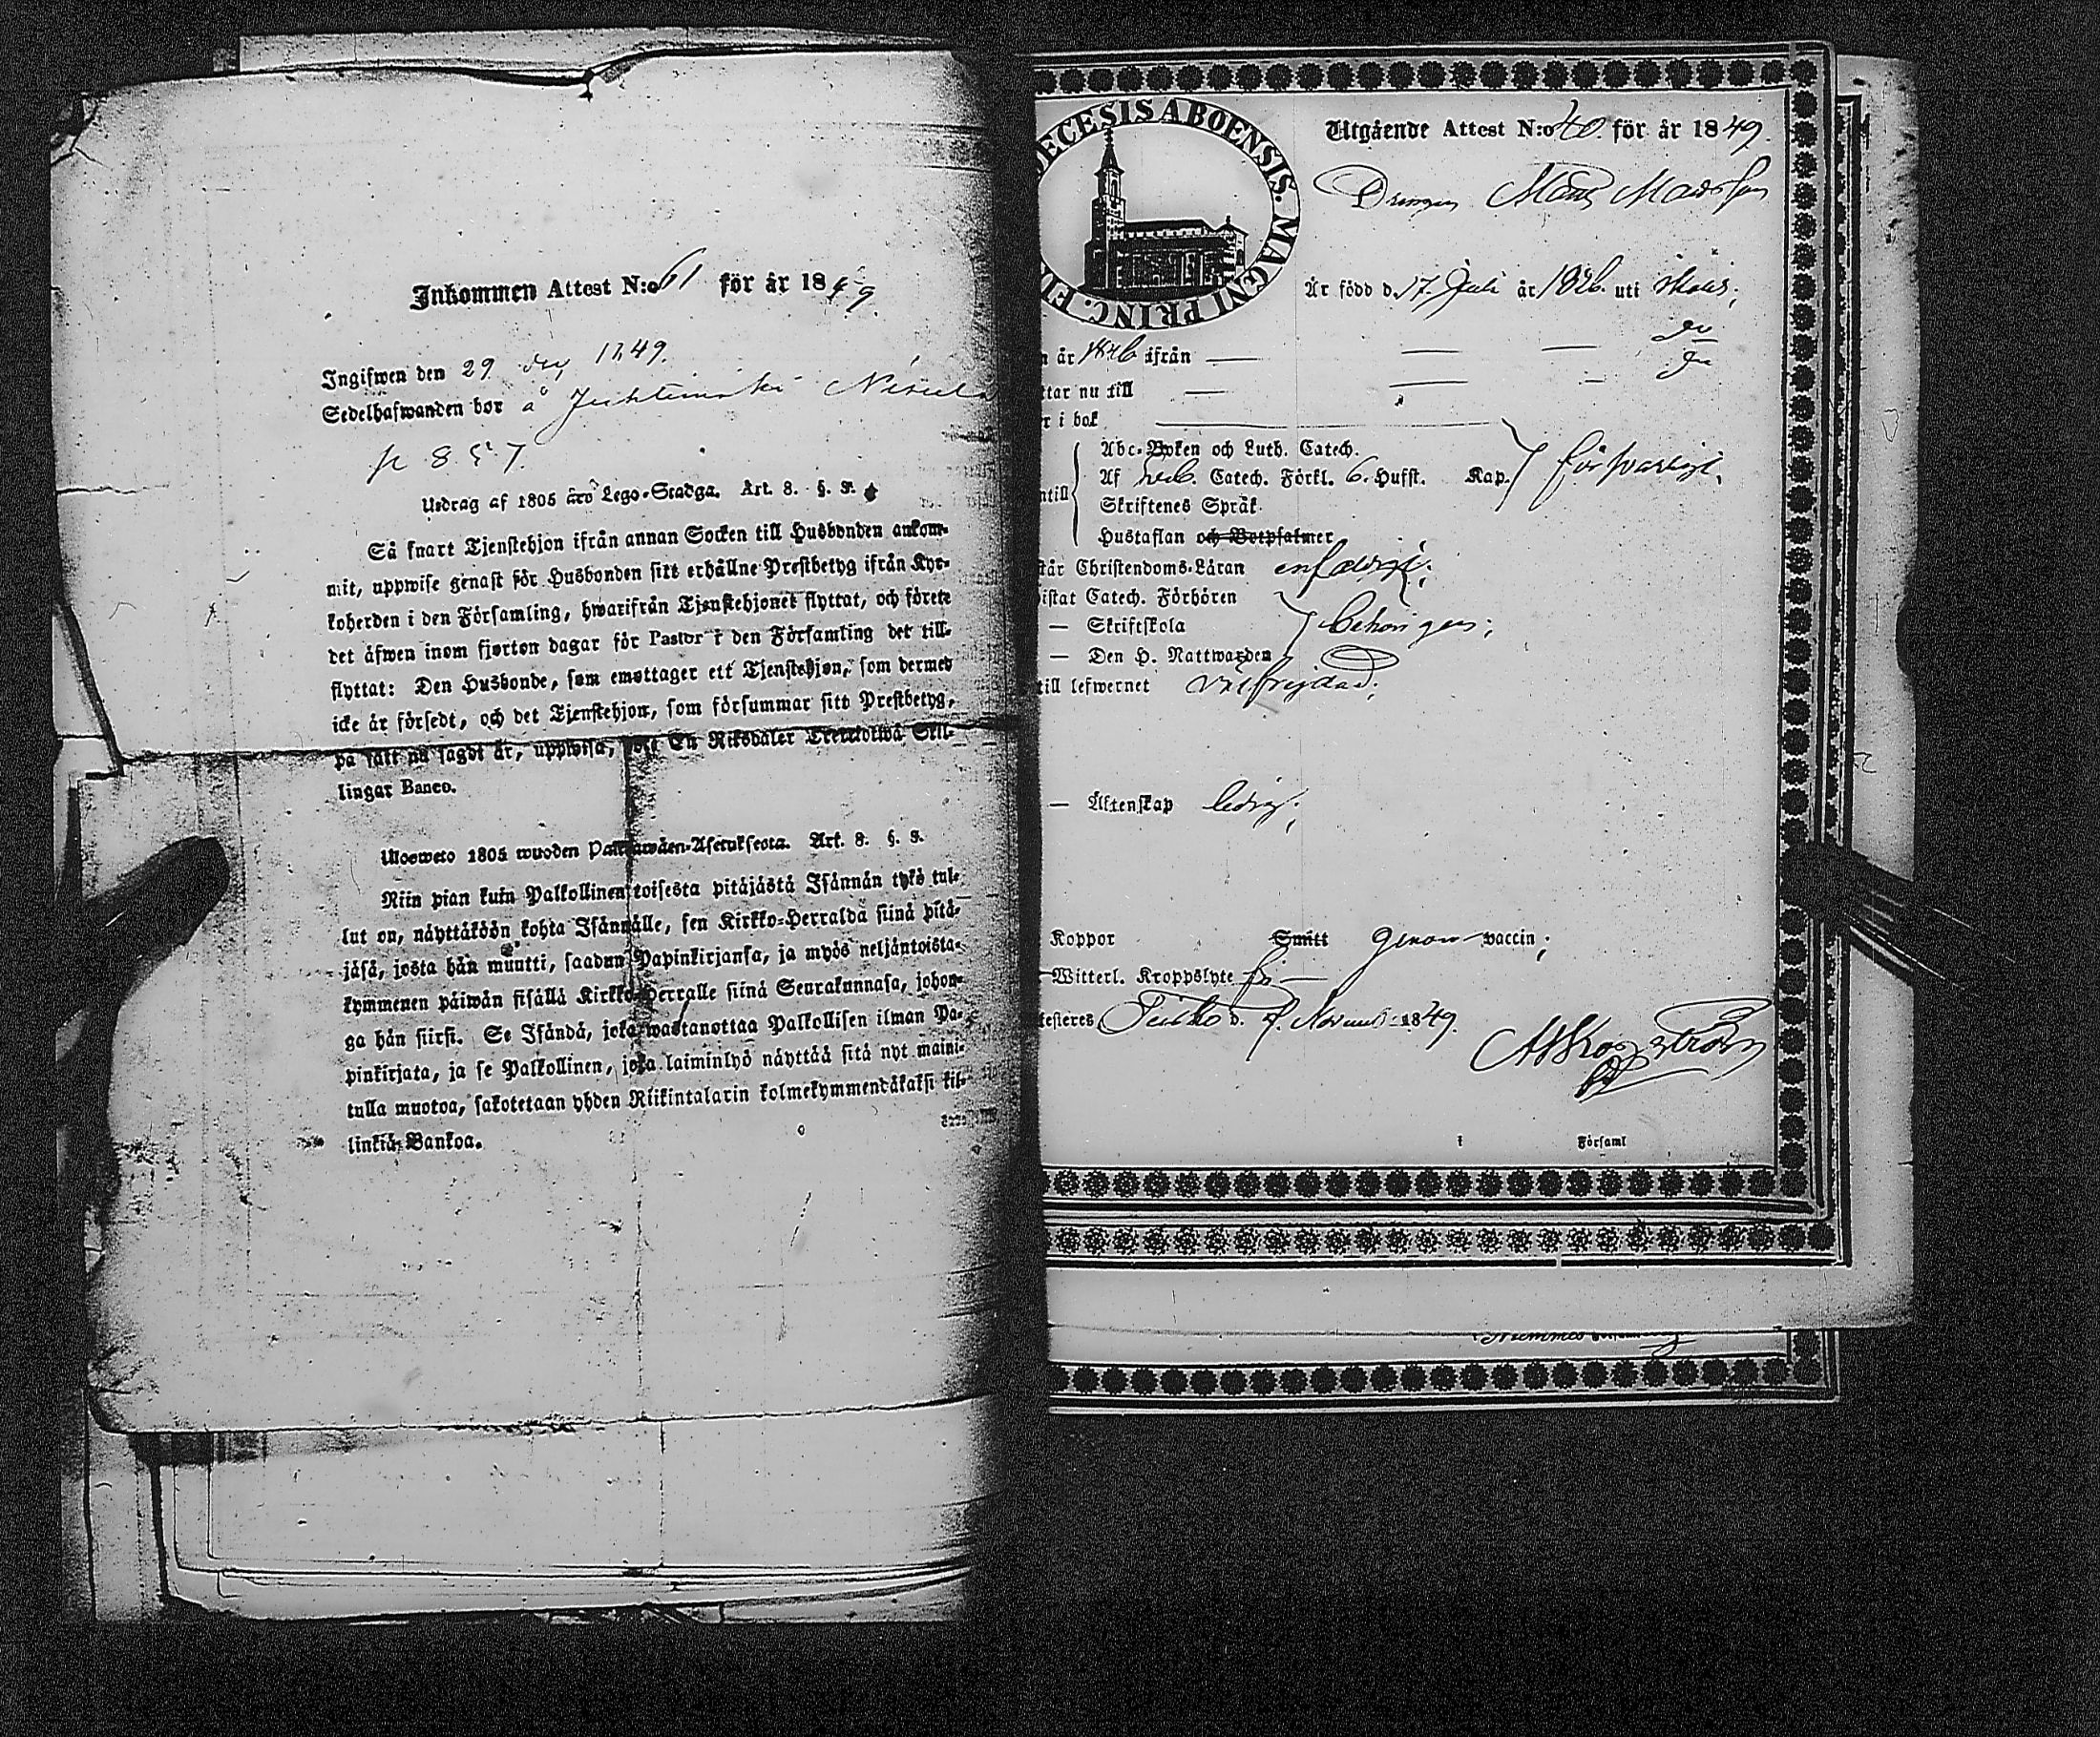 Inkommen Attest N:o 61 för år 1849.
Ingifwen den 29 1849.
Sedelhafwanden bor å
p 857.
Utdrag af 1805 års Lego-Stadga. Art. 8. §. 8.
Så snart Tjenstehjon ifrån annan Socken till Husbonden ankom-
mit, uppwise genast för Husbonden sitt erhållne Prestbetyg ifrån Kyr-
koherden i den Församling, hwarifrån Tjenstehjonet flyttat, och förete
det äfwen inom fjorton dagar för Pastor i den Församling det till-
flyttat: Den Husbonde, som emottager ett Tjenstehjon, som dermed
icke är försedt, och det Tjenstehjon, som försummar sitt Prestbetyg,
på sätt nu sagdt är, uppwisa, En Riksdaler Trettiotwå Skil-
lingar Banco.
Ulosweto 1805 wuoden Palkkawäen-Asetuksesta. Art. 8. §. 8.
Niin pian kuin Palkollinen toisesta pitäjästä Isännän tykö tul-
lut on, näyttäköön kohta Isännälle, sen Kirkko-Herralda siinä pitä-
jäsä, josta hän muutti, saadun Papinkirjansa, ja myös neljäntoista-
kymmenen päiwän sisällä Kirkko-Herralle siinä Seurakunnasa, johon-
ga hän siirsi. Se Isändä, joka wastanottaa Palkollisen ilman Pa-
pinkirjata, ja se Palkollinen, joka laiminlyö näyttää sitä nyt maini-
tulla muotoa, sakotetaan yhden Riikintalarin kolmekymmentäkaksi kil-
linkiä Bankoa.
ECESIS ABOENSIS. MAGNI PRINC. FI
Utgående Attest N:o 40 för år 1849.
Drengen Mats Matsson
Är född d. 17 Juli år 1826 uti
n år 1826 ifrån — — — do
ttar nu till — — — do
r i bok
Abc-Boken och Luth. Catech.
Af Catech. Förkl. 6. Hufst. Kap. försvarligt,
ntill
Skriftenes Språk.
Hustaflan och Botpsalmer
står Christendoms-Läran enfaldigt;
istat Catech. Förhören
— Skriftskola behörigen;
— Den H. Nattwarden
till lefwernet välfrejdad;
— Äktenskap ledig;
Koppor Smitt genom vaccin;
— Witterl. Kroppslyte fri —
testeras d. Novemb. 1849.
i Församl